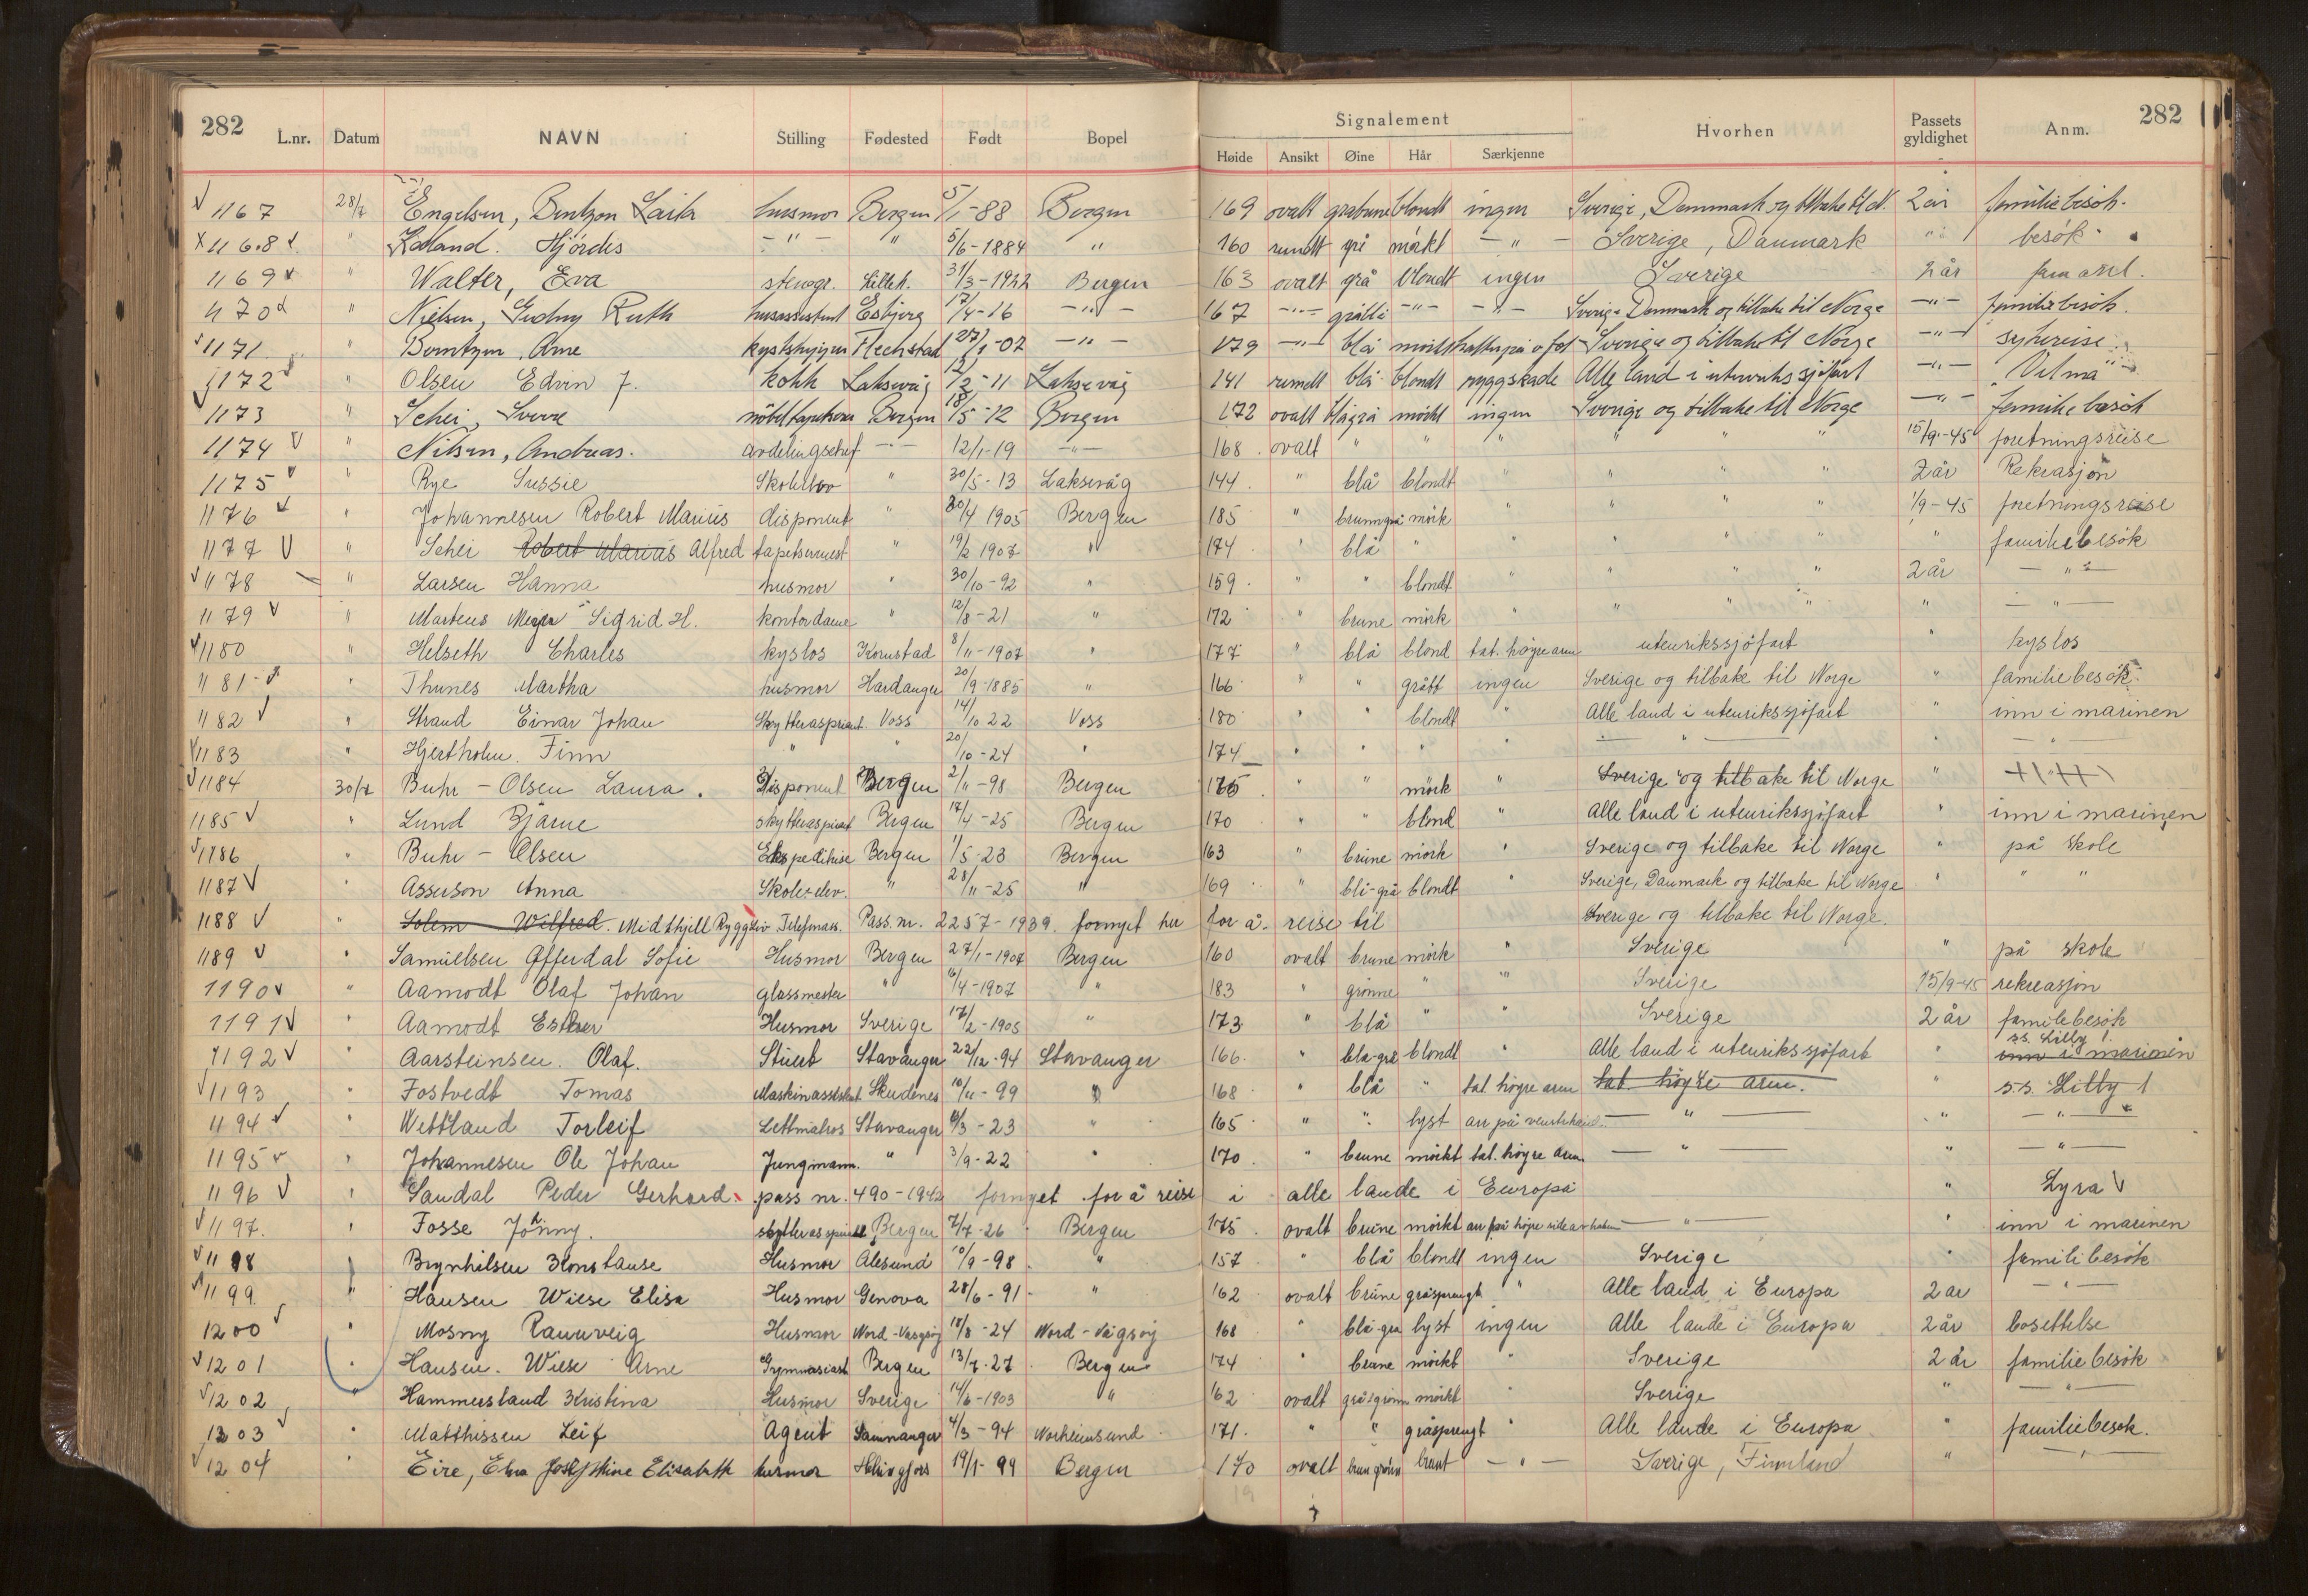 282 L.nr. Datum NAVN Stilling Fødested Født Bopel
Signalement Hvorhen Passets gyldighet Anm. 282
Høide Ansikt Øine Hår Særkjenne
1167 28/7 Engelsen, Bentzon Laila husmor Bergen 5/1-88 Bergen 169 ovalt gråbune blondt ingen Sverige, Danmark og tilbake til N. 2 år familiebesök.
1168 " Kalland. Hjördis - " - " 5/6-1884 " 160 rundt grå mörkt - " - Sverige, Danmark " " besök
1169 " Walter, Eva stenogr. Lilleh. 31/3-1922 Bergen 163 ovalt grå blondt ingen Sverige 2 år
1170 " Nielsen, Gudny Ruth husassistent Esbjerg 17/4-16 -"- 167 -"- -"- -"- Sverige Danmark og tilbake til Norge -"- familiebesök.
1171 " Berntzen, Arne Flechstad 27/1-02 -"- 179 -"- blå Sverige og tilbake til Norge -"- sykereise
1172 " Olsen Edvin J. kokk Laksevåg 12/2-11 Laksevåg 141 rundt blå blondt ryggskade Alle land i utenriks sjöfart -"- "Vilma"
1173 " Schei, Sverre Bergen 18/5-12 Bergen 172 ovalt blågrå mörkt ingen Sverige og tilbake til Norge -"- familie besök
1174 " Nilsen, Andreas. avdelingschef -"- 12/1-19 -"- 168 ovalt " " " " " " 15/9-45 foretningsreise
1175 " Rye Sussie Skoleelev " 30/5-13 Laksevåg 144 " blå blondt " " " " 2 år Rekreasjon
1176 " Johannesen Robert Marius disponent " 30/4 1905 Bergen 185 " brunngrå mörk " " " " 1/9-45 foretningsreise
1177 " Schei Robert Marius Alfred tapetsermest " 19/2 1907 " 174 " blå " " " " " " familiebesök
1178 " Larsen Hanna husmor " 30/10-92 " 159 " " blondt " " " " 2 år - " -
1179 " Martens Meyer Sigrid H. kontordame " 12/8-21 " 172 " brune mörk " " " " " - " -
1180 " Helseth Charles kyslos Kornstad 8/11-1907 " 177 " blå blond tat. högre arm utenrikssjöfart " kyslos
1181 " Thunes Martha husmor Hardanger 20/9-1885 " 166 " " grått ingen Sverige og tilbake til Norge " familiebesök
1182 " Strand Einar Johan Skytteraspirant Voss 14/10 22 Voss 180 " " blondt " Alle land i utenrikssjöfart " inn i marinen
1183 " Hjertholm. Finn " " 20/10-24 " 174 " " " " - " - " - " -
1184 30/7 Buhr - Olsen Laura. Disponent Bergen 2/11-98 Bergen " " mörk " Sverige og tilbake til Norge "
1185 " Lund Bjarne skytteraspirant Bergen 17/4-25 Bergen 170 " " blond " Alle land i utenrikssjöfart " inn i marinen
1186 " Buhr - Olsen Ekspeditrise Bergen 1/5-23 Bergen 163 " brune mörk " Sverige og tilbake til Norge " på skole
1187 " Asserson Anna Skole-elev. " 28/11-25 " 169 " blå-grå blondt " Sverige, Danmark og tilbake til Norge " " "
1188 " Solem Wilfred. Midthjell Rygg Pass. nr. 2257-1939. fornyet her for å reise til Sverige og tilbake til Norge.
1189 " Samuelsen Gfferdal Sofie Husmor Bergen 27/1-1907 Bergen 160 ovalt brune mörk " Sverige " på skole
1190 " Aamodt Olaf Johan glassmester " 16/4-1907 " 183 " grönne " " Sverige 15/9-45 rekreasjon
1191 " Aamodt Esther Husmor Sverige 17/2-1905 " 173 " blå " " Sverige 2 år familebesök
1192 " Aarsteinsen. Olaf. Stuert Stavanger 22/12-94 Stavanger 166 " blå-grå blondt " Alle land i utenrikssjöfart " s.s. Lilly 1. inn i marinen
1193 " Fostvedt Tomas Maskinassistent Skudenes 10/11-99 " 168 " blå " tat. högre arm tat. högre arm. " s.s. Lilly 1
1194 " Wettland Torleif Lettmatros Stavanger 6/3-23 " 165 " " lyst arr på venstrehånd - " - " - " -
1195 " Johannesen Ole Johan Jungmann. " 3/9-22 " 170 " brune mörkt tat. högre arm - " - " - " -
1196 " Sandal Peder Gerhard. pass nr. 490-1942 fornyet for å reise i alle lande i Europa " Lyra
1197. " Fosse Jonny. Bergen 7/7-26 Bergen 175 ovalt brune mörkt arr på högre side av halsen - " - " inn i marinen
1198 Brynhilsen Konstanse Husmor Alesund 10/9-98 " 157 " blå blondt ingen Sverige " familibesök
1199 " Hansen Wiese Elisa Husmor Genova 28/6-91 " 162 ovalt brune gråsprengt " Alle land i Europa 2 år - " -
1200 " Mosny Rannveig Husmor Nord-Vågsöy 18/8-24 Nord-Vågsöy 168 " blå-grå lyst ingen Alle lande i Europa 2 år bosettelse
1201 " Hansen. Wiese Arne Gymnasiast Bergen 13/7-27 Bergen 174 " brune mörkt " Sverige 2 år familiebesök
1202 " Hammersland Kristina Husmor Sverige 14/6-1903 " 162 ovalt grålgrönn mörkt " Sverige " - " -
1203 " Matthissen Leif Agent Samnanger 4/3-94 Norheimsund 171. " " gråsprengt " Alle lande i Europa " familiebesok.
1204 " Eire, Elna Josephine Elisabeth husmor Helsingfors 19/1-99 Bergen 170 ovalt brungrönn brunt - " - Sverige, Finnland " - " -
19